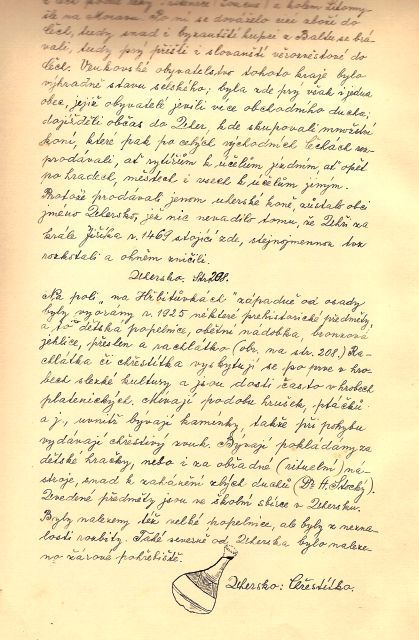 na Moravu. To mi se dováželo více zboží do
Čech, tudy snad i byzantští kupce z Baltu se brá-
vali, tudy prý přišli i slovanští věrozvěstové do
Čech. Venkovské obyvatelstvo tohoto kraje bylo
výhradně stavu selského; byla zde prý však i jedna
obec, jejíž obyvatelé jevili více obchodního ducha;
dojížděli občas do Uher, kde skupovali množství
koní, které pak po celých východních Čechách roz-
prodávali, ať rytířům k účelům jízdním, ať opět
po hradech, městech i vsech k účelům jiným.
Protože prodávali jenom uherské koně, zůstalo obci
jméno Uhersko, jež nic nevadilo tomu, že Uhři za
krále Jiříka r. 1469 stojící zde, stejnojmennou tvrz
rozkotali a ohněm zničili.
Uhersko. Str. 208.
Na poli „na Hřbitůvkách" západně od osady
byly vyorány r. 1925 některé prehistorické předměty,
a to dětská popelnice, obětní nádobka, bronzová
jehlice, přeslen a rachlátko (obr. na str. 208.) Ra-
chlátka či chřestítka vyskytují se po prve v hro-
bech slezké kultury a jsou dosti často v hrobech
platenických. Mívají podobu hrušek, ptáčků
a j., uvnitř bývají kamínky, takže při pohybu
vydávají chřestivý zvuk. Bývají pokládány za
dětské hračky, nebo i za obřadné (rituelní) ná-
stroje, snad k zahánění zlých duchů (Dr. A. Stocký).
Uvedené předměty jsou ve školní sbírce v Uhersku.
Byly nalezeny též velké popelnice, ale byly z nezna-
losti rozbity. Také severně od Uherska bylo naleze-
no žárové pohřebiště.
Uhersko: Chřestítko.